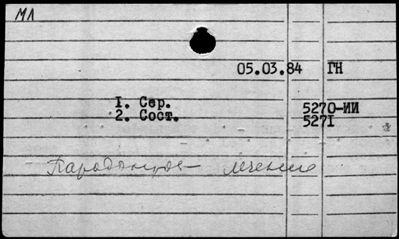 МЛ
05.03.84 ГН
I. Сер. 5270-ИИ
2. Сост. 527I
Пародонтоз - лечение